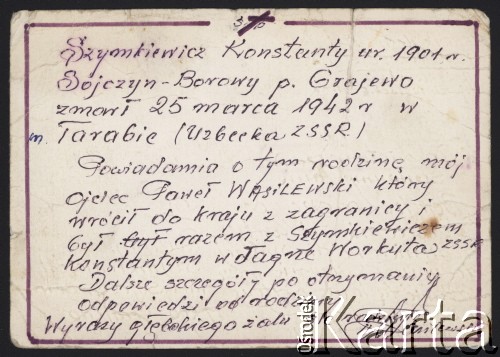 Szymkiewicz Konstanty ur. 1901 r.
Sójczyn-Borowy p. Grajewo
zmarł 25 marca 1942 r w
m. Tarabie (Uzbecka ZSSR)
Powiadamia o tym rodzinę mój
ojciec Paweł WASILEWSKI który
wrócił do kraju z zagranicy i
był był razem z Szymkiewiczem
Konstantym w Łagrze Workuta ZSSR
Dalsze szczegóły po otrzymaniu
odpowiedzi od rodziny
Wyrazy głębokiego żalu
Ośrodek
Karta